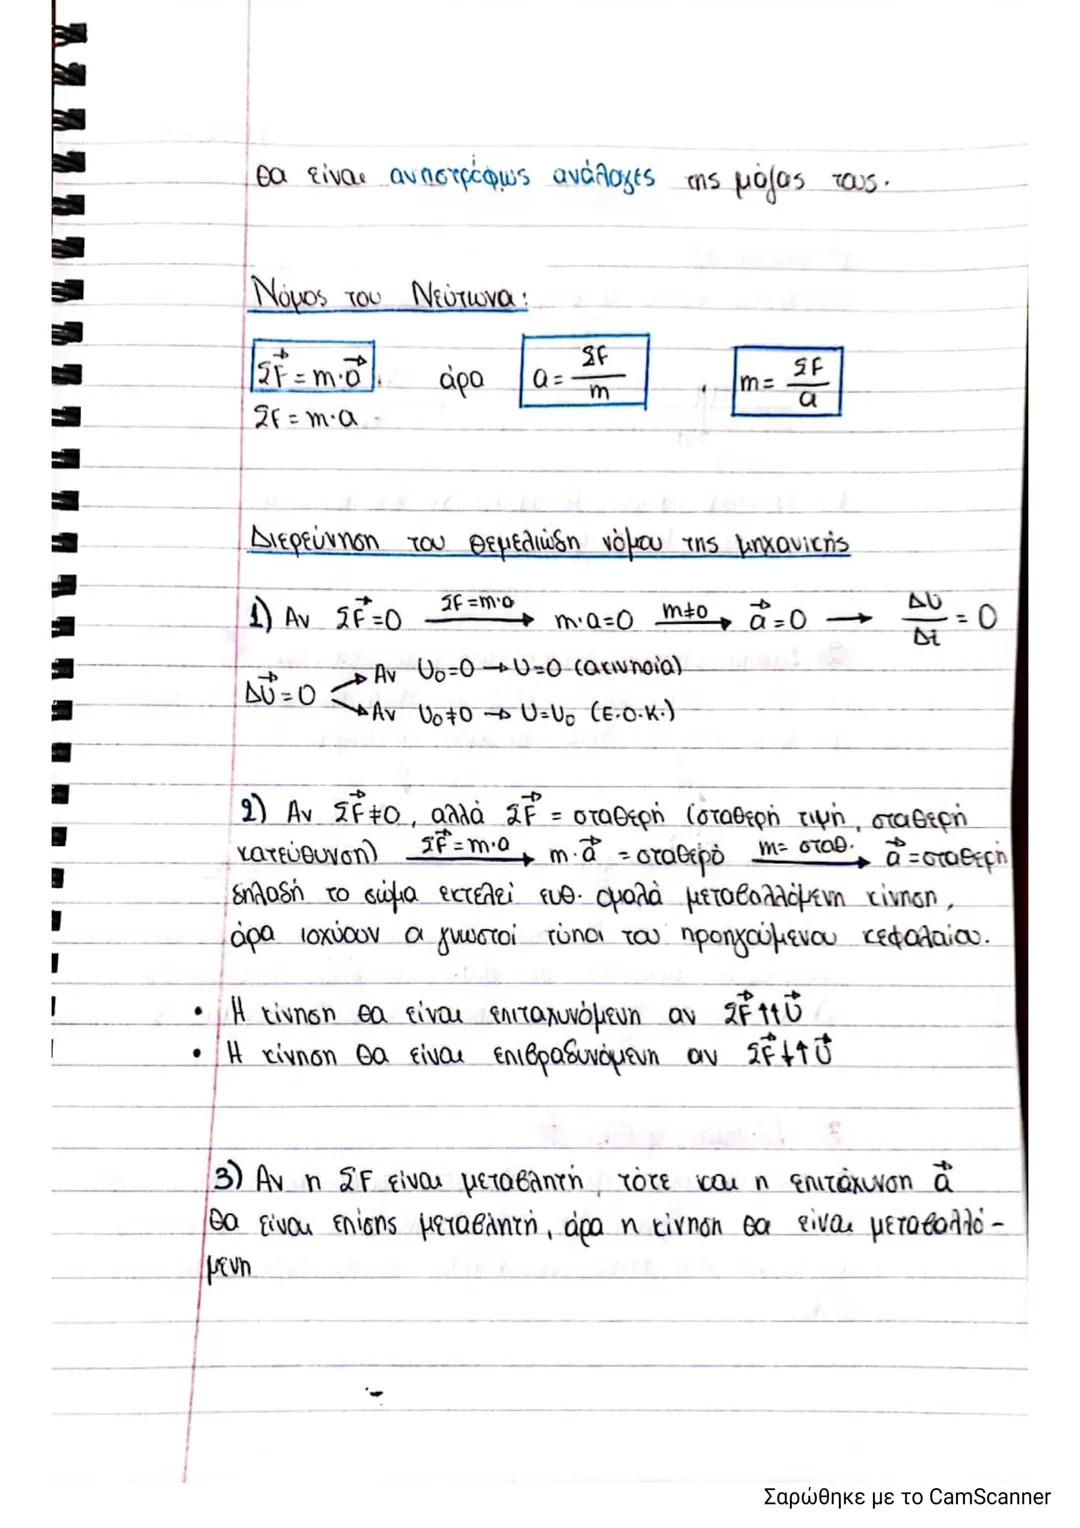 θα είναι αντιστρόφως ανάλογες της μάζας τους.
Νόμος του Νεύτωνα:
ΣF⃗ = m·a⃗ άρα a = ΣF/m , m = ΣF/a
ΣF = m·a
Διερεύνηση του θεμελιώδη νόμου της μηχανικής
1) Αν ΣF⃗=0 —ΣF=m·a→ m·a=0 —m≠0→ a⃗=0 → ΔU/Δt = 0
ΔU⃗=0 → Αν U₀=0 → U=0 (ακινησία)
→ Αν U₀≠0 → U=U₀ (Ε.Ο.Κ.)
2) Αν ΣF⃗≠0, αλλά ΣF⃗ = σταθερή (σταθερή τιμή, σταθερή
κατεύθυνση) —ΣF⃗=m·a→ m·a⃗ = σταθερό —m= σταθ.→ a⃗=σταθερή
δηλαδή το σώμα εκτελεί ευθ. ομαλά μεταβαλλόμενη κίνηση,
άρα ισχύουν οι γνωστοί τύποι του προηγούμενου κεφαλαίου.
• Η κίνηση θα είναι επιταχυνόμενη αν ΣF⃗↑↑U⃗
• Η κίνηση θα είναι επιβραδυνόμενη αν ΣF⃗↓↑U⃗
3) Αν η ΣF είναι μεταβλητή, τότε και η επιτάχυνση a⃗
θα είναι επίσης μεταβλητή, άρα η κίνηση θα είναι μεταβαλλό-
μενη
Σαρώθηκε με το CamScanner